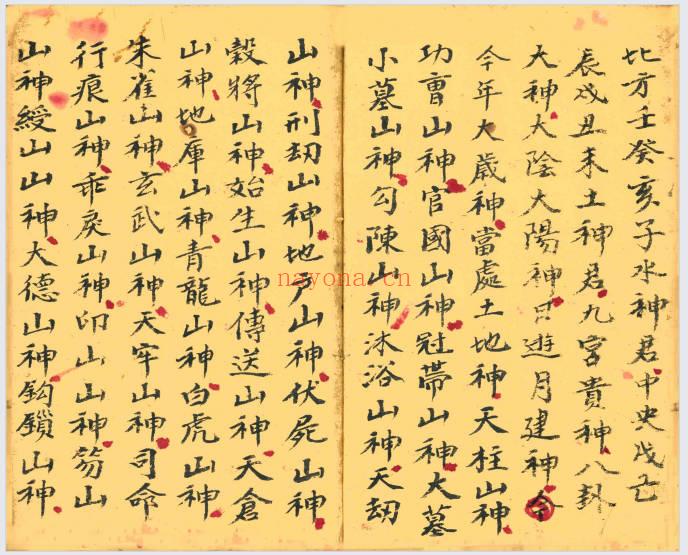 北方壬癸亥子水神君中央戊己
辰戌丑未土神君九宮貴神八卦
大神太陰太陽神日遊月建神今
今年大歲神當處土地神天柱山神
功曹山神官國山神冠帶山神大墓
小墓山神勾陳山神沐浴山神天劫
山神刑劫山神地户山神伏屍山神
穀將山神始生山神傳送山神天倉
山神地庫山神青龍山神白虎山神
朱雀山神玄武山神天牢山神司命
行痕山神乖戾山神印山山神笏山
山神綬山山神大德山神鈎鎖山神
nayona.cn